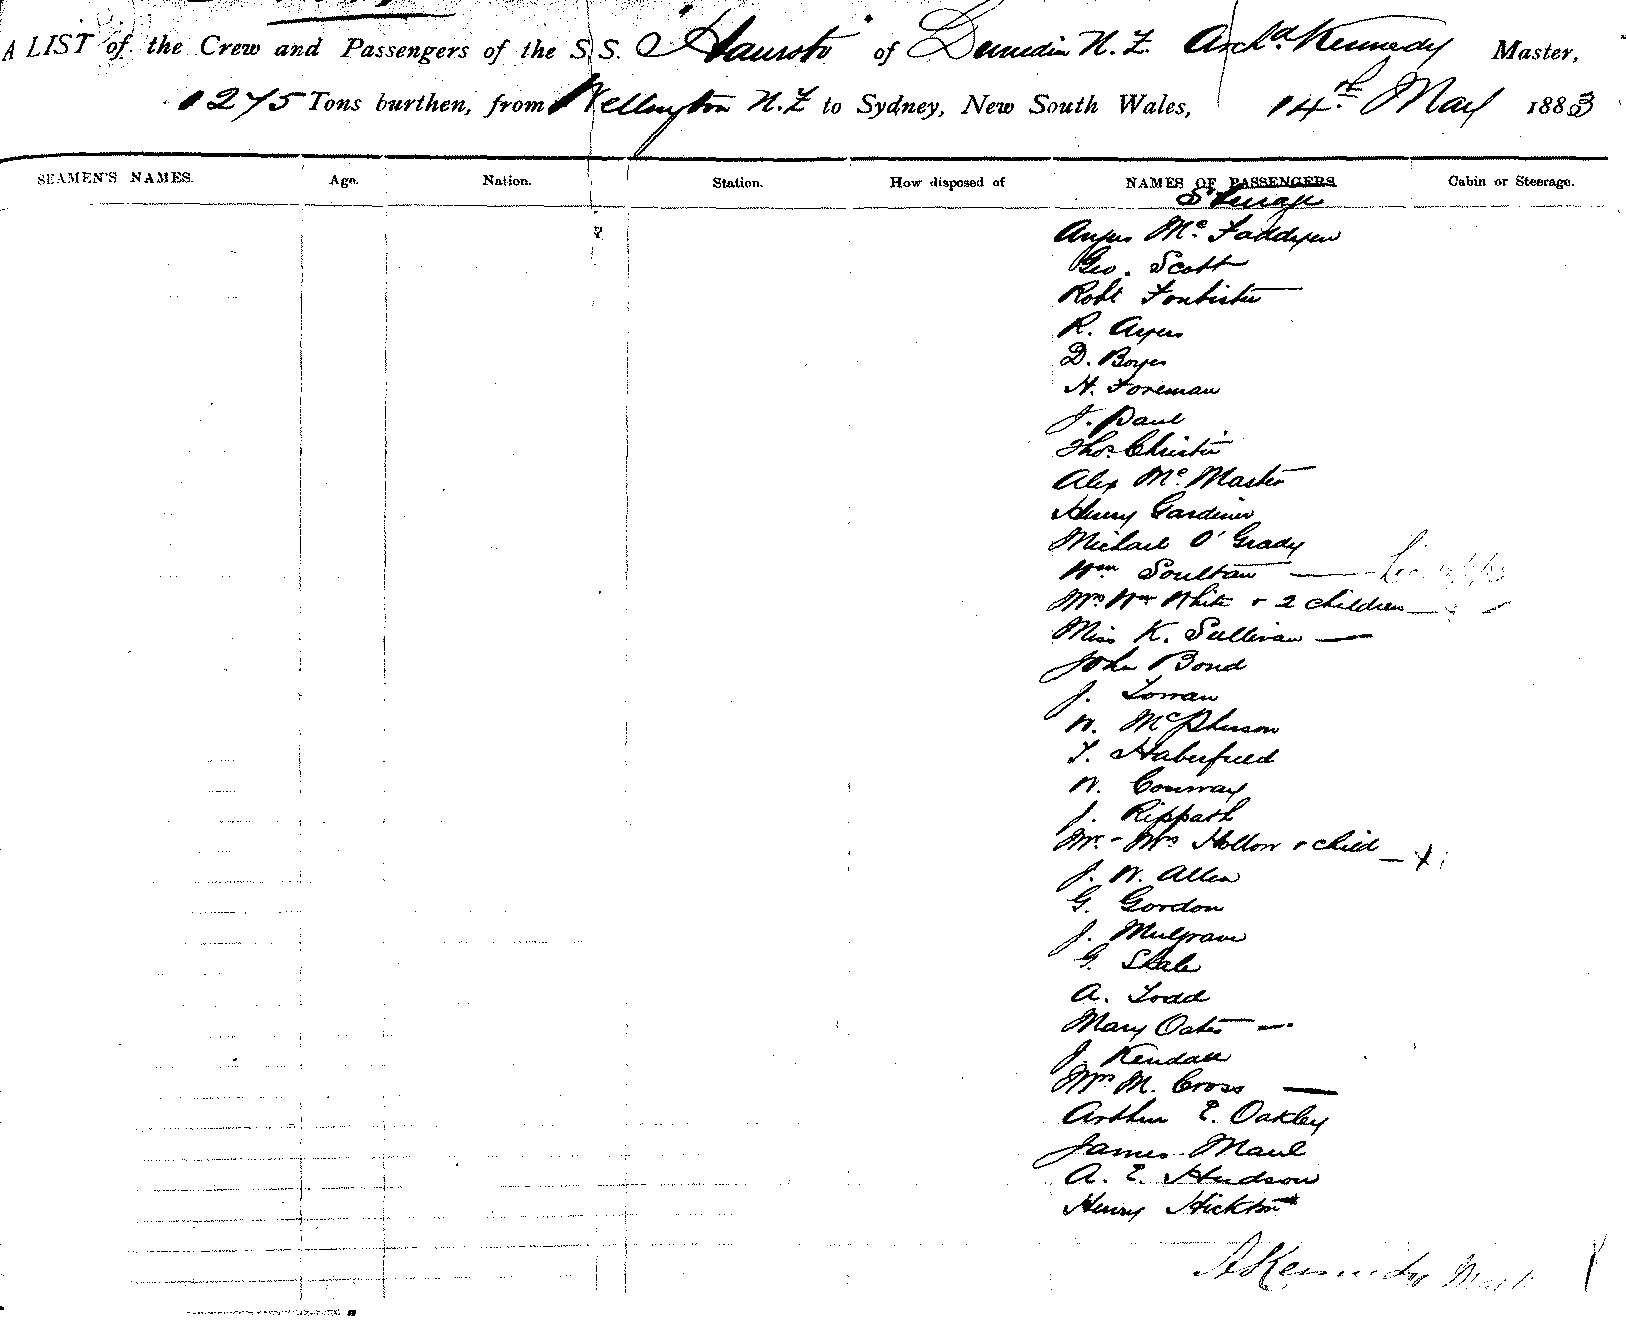 A LIST of the Crew and Passengers of the S.S. "Hauroto" of Dunedin N.Z. Archd Kennedy Master,
1275 Tons burthen, from Wellington N.Z to Sydney, New South Wales, 14th May 1883
SEAMEN'S NAMES. Age. Nation. Station. How disposed of NAMES OF PASSENGERS Cabin or Steerage.
Steerage
Angus Mc Faddyen
Geo. Scott
Robt Foubister
R. Ayers
D. Boyes
H. Foreman
J. Paul
Thos Christie
Alex Mc Master
Henry Gardiner
Michael O'Grady
Wm Soultan
Mrs Wm White & 2 children
Miss K. Sullivan
John Bond
J. Lowan
W. McPherson
T. Haberfield
W. Conway
J. Rippath
Mr - Mrs Hollow & child
J. W. Allen
G. Gordon
J. Mulgrave
G. Skale
A. Todd
Mary Oates
J. Kendall
Mrs M. Cross
Arthur E. Oakley
James Maul
A. E. Hudson
Henry Hickton
A Kennedy